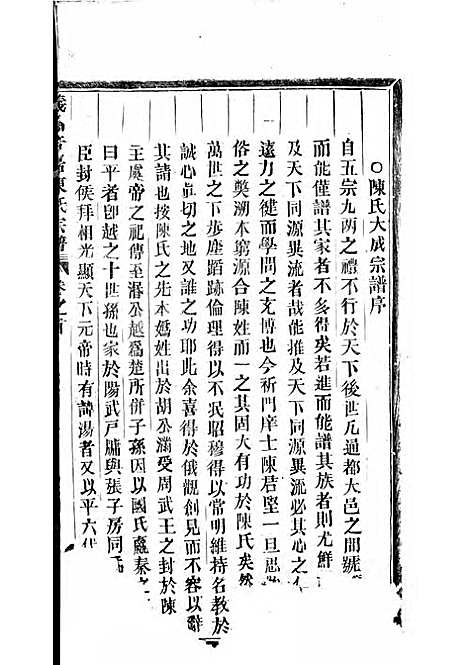 ○陳氏大成宗譜序
自五宗九兩之禮不行於天下後世凡通都大邑之間號
而能僅譜其家者不多得矣若進而能譜其族者則尤鮮
及天下同源異流者哉能推及天下同源異流必其心之
遠力之健而學問之充博也今祈門庠士陳君堅一旦思
俗之獘溯木窮源合陳姓而一之其固大有功於陳氏矣然
萬世之下步塵蹈跡倫理得以不泯昭穆得以常明維持名教於
誠心眞切之地又誰之功耶此余喜得於俄觀創見而不容以辭
其譜也按陳氏之先本媯姓出於胡公滿受周武王之封於陳
主虞帝之祀傳至湣公越爲楚所併子孫因以國氏處秦之
曰平者卽越之十世孫也家於陽武戶牖與張子房同
臣封侯拜相光顯天下元帝時有諱湯者又以平六代
陳氏宗譜 卷之首